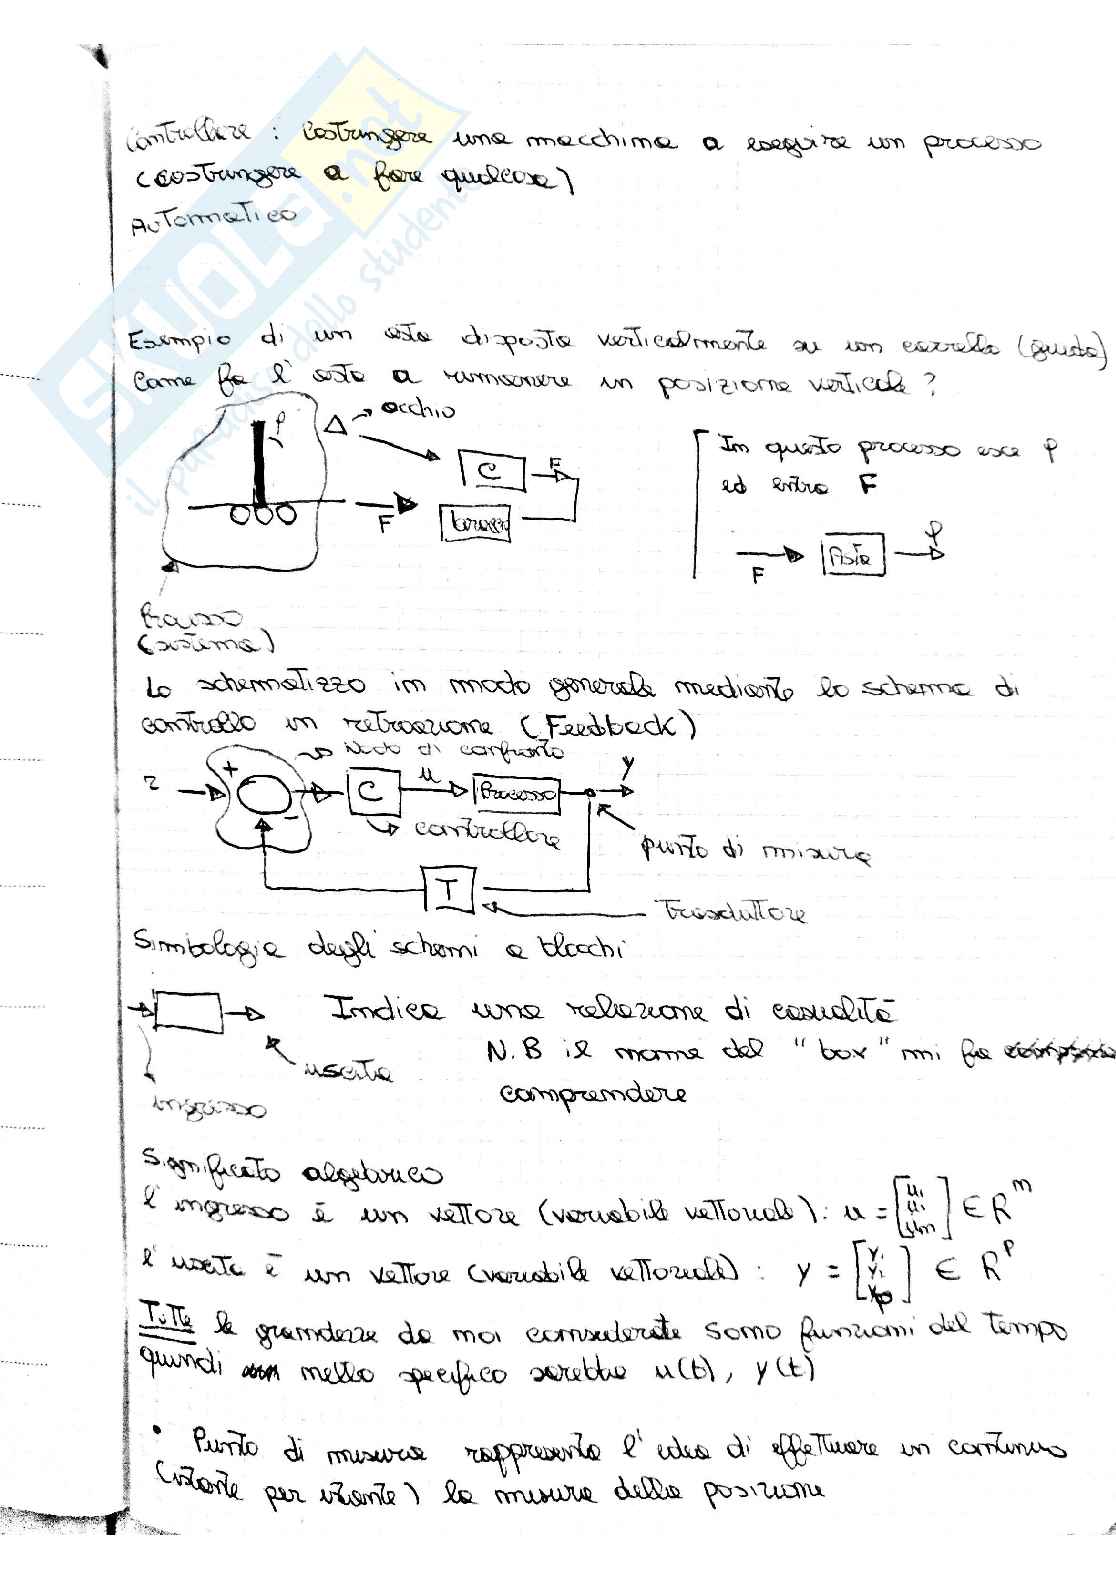 SKUOLA.net
il paradiso dello studente
Controllare : Costringere una macchina a eseguire un processo
(costringere a fare qualcosa)
Automatico
Esempio di un asta disposta verticalmente su un carrello (guida)
Come fa l'asta a rimanere in posizione verticale ?
φ
Δ → occhio
C
F
F
In questo processo esce φ
ed entra F
F
Asta
φ
Processo
(sistema)
Lo schematizzo in modo generale mediante lo schema di
controllo in retroazione (Feedback)
→ Nodo di confronto
r
+
-
C
u
Processo
y
→ controllore
punto di misura
T
Trasduttore
Simbologia degli schemi a blocchi
Indica una relazione di casualità
uscita
ingresso
N.B il nome del "box" mi fa
comprendere
Significato algebrico
l'ingresso è un vettore (variabile vettoriale) : u = [u1 ui um] ∈ R^m
l'uscita è un vettore (variabile vettoriale) : y = [y1 yi yp] ∈ R^p
Tutte le grandezze da noi considerate sono funzioni del tempo
quindi nello specifico sarebbe u(t), y(t)
• Punto di misura rappresenta l'idea di effettuare in continuo
(istante per istante) la misura della posizione